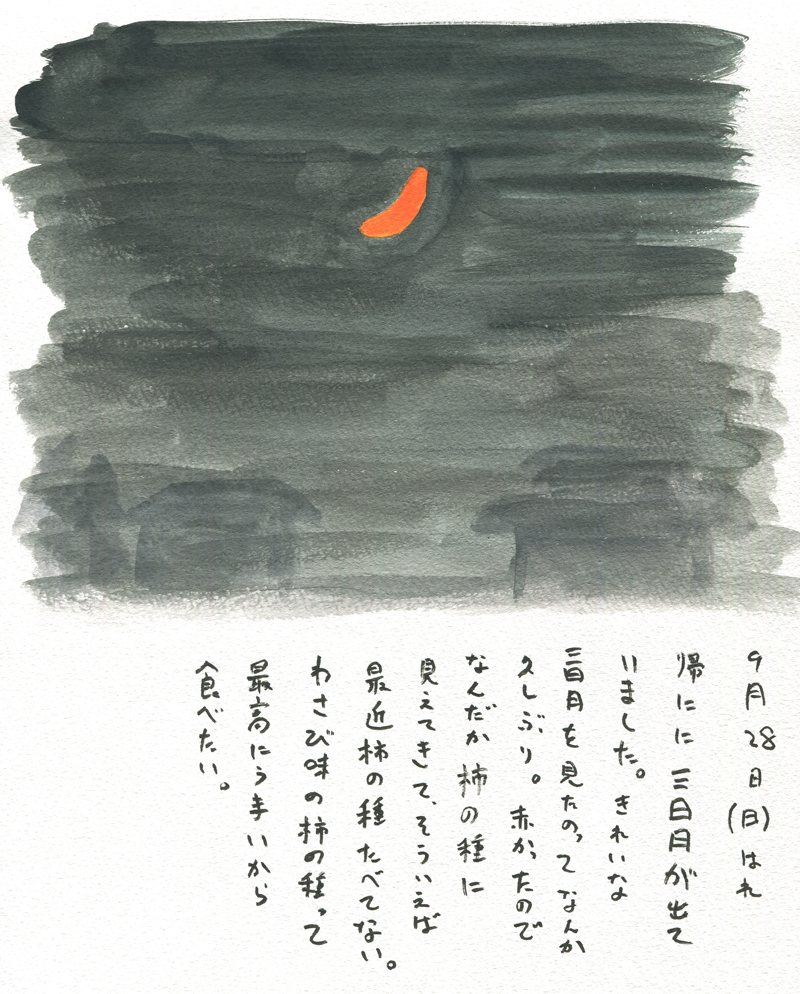 9月28日(日)はれ
帰にに三日月が出て
いました。きれいな
三日月を見たのってなんか
久しぶり。赤かったので
なんだか柿の種に
見えてきて、そういえば
最近柿の種たべてない。
わさび味の柿の種って
最高にうまいから
食べたい。